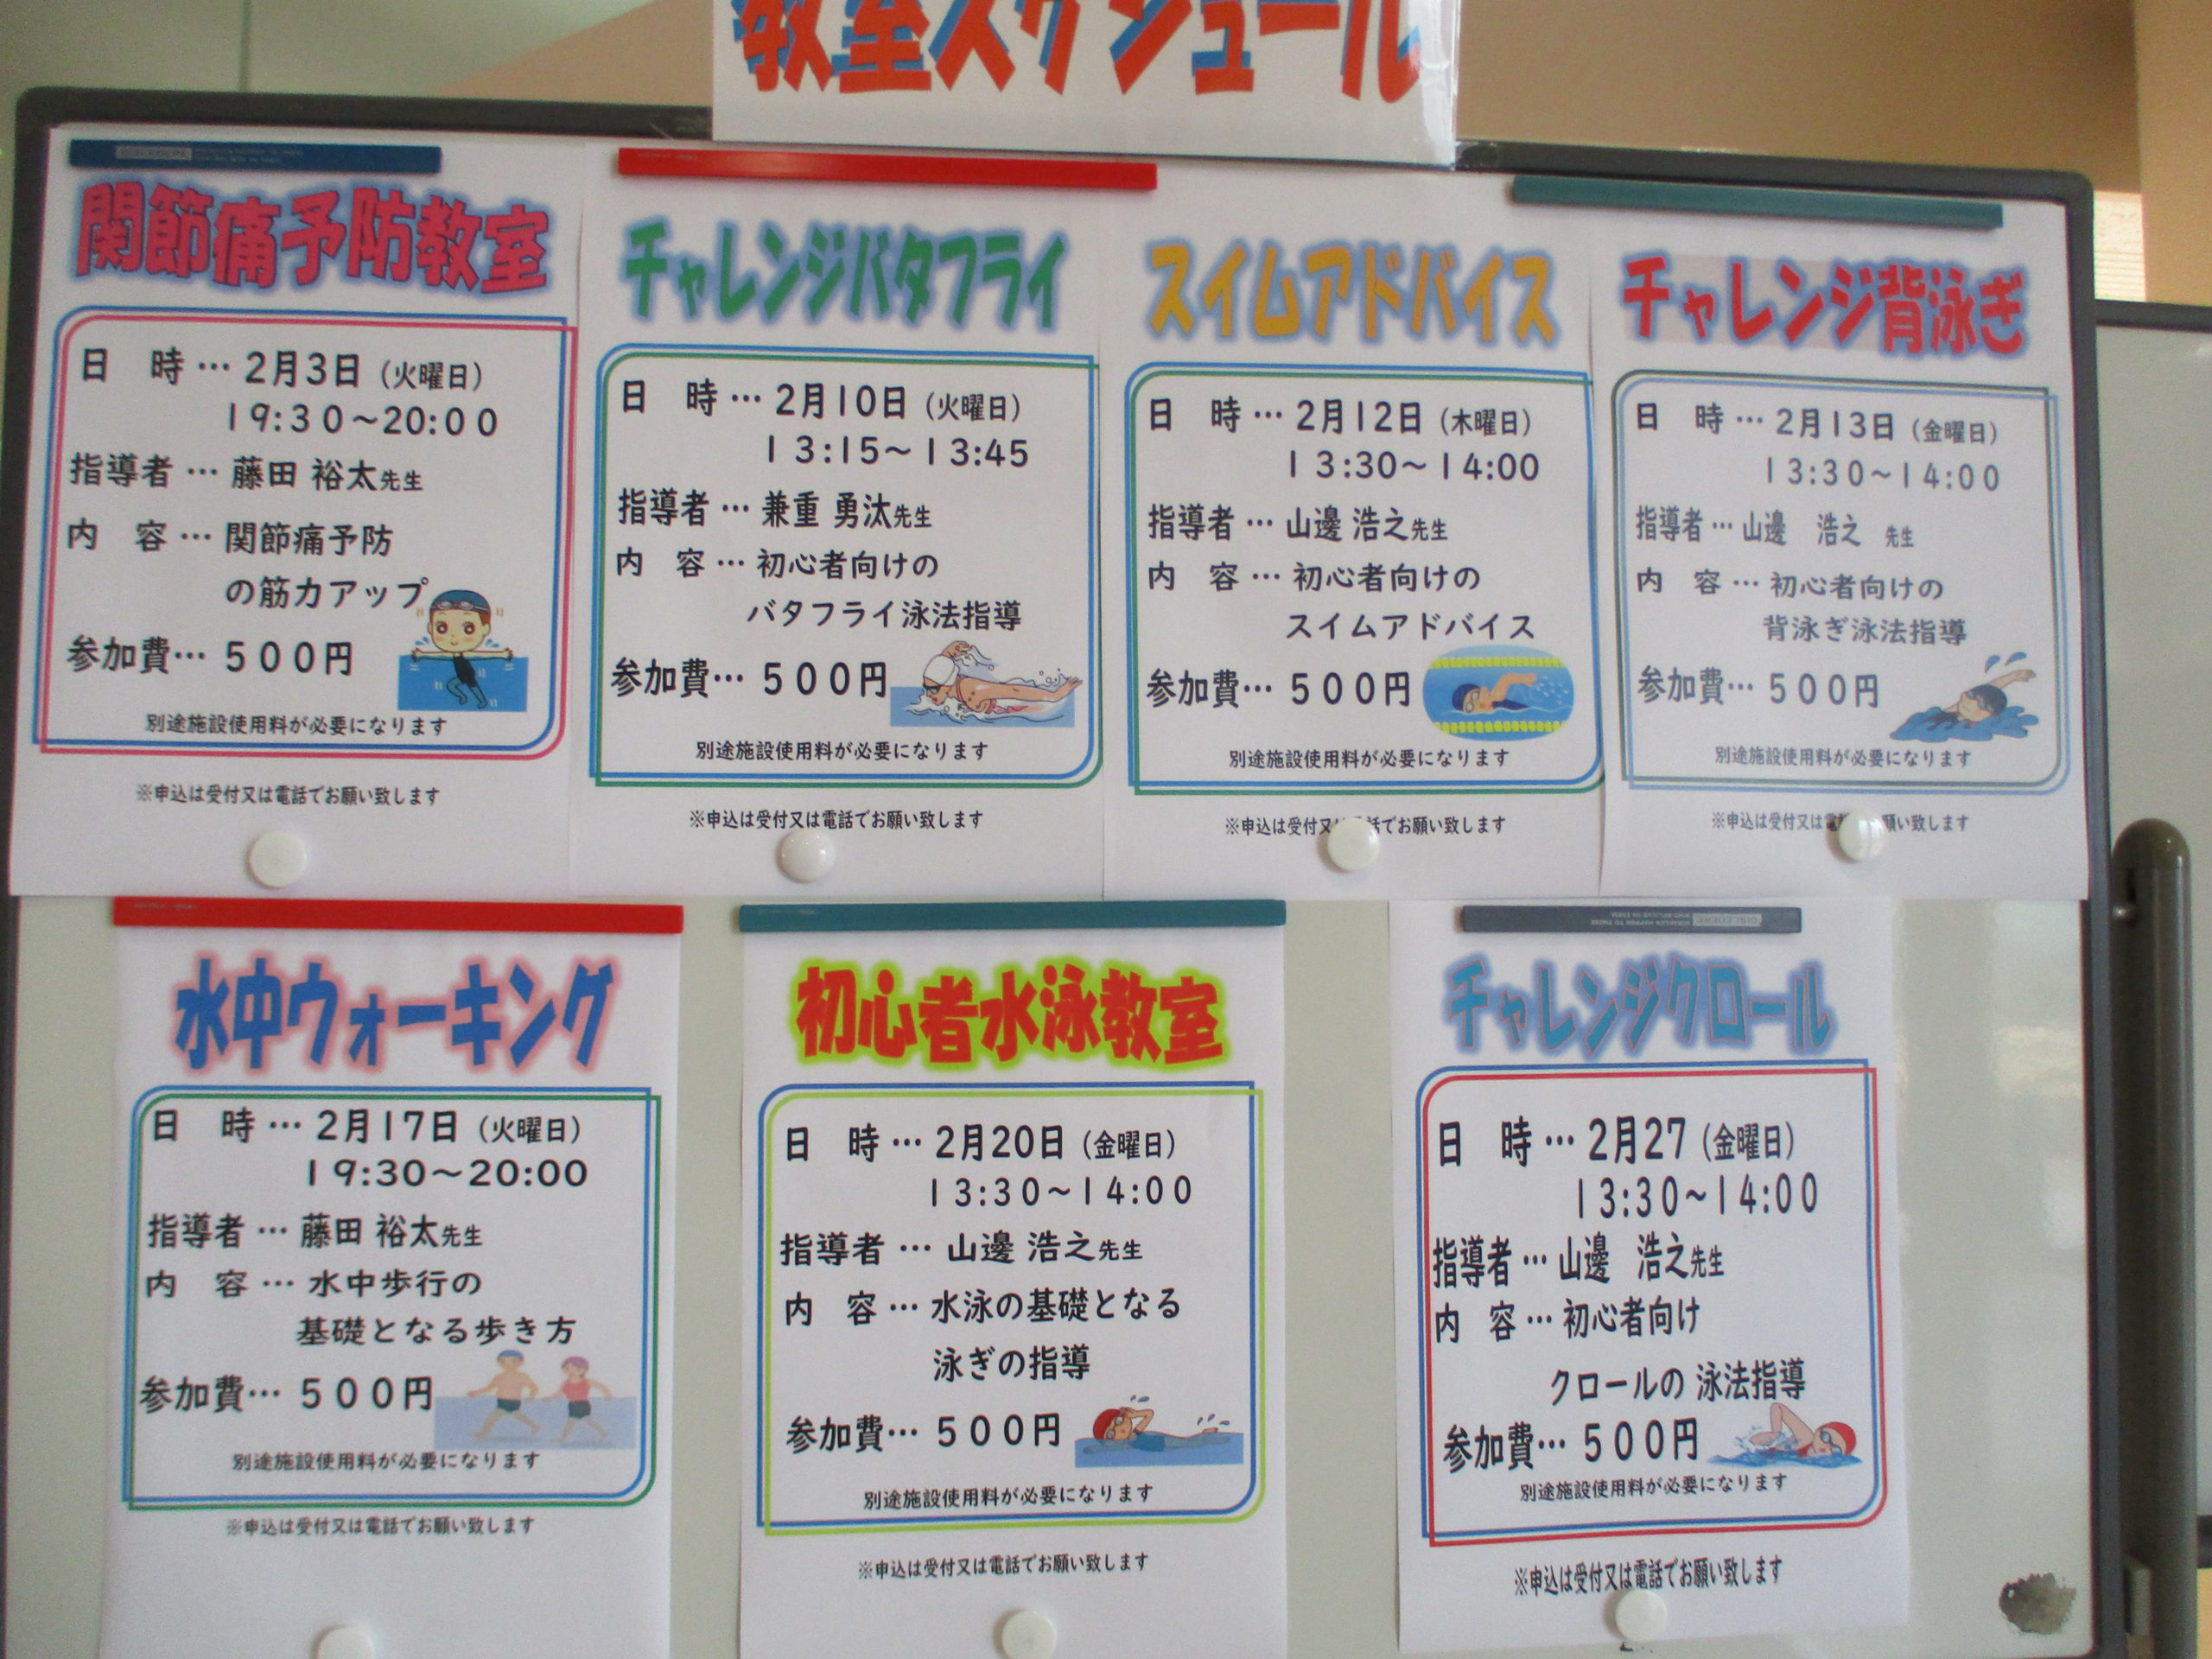 教室スケジュール
関節痛予防教室
日 時…2月3日(火曜日)
19:30~20:00
指導者…藤田 裕太先生
内 容…関節痛予防
の筋力アップ
参加費…500円
別途施設使用料が必要になります
※申込は受付又は電話でお願い致します
チャレンジバタフライ
日 時…2月10日(火曜日)
13:15~13:45
指導者…兼重 勇汰先生
内 容…初心者向けの
バタフライ泳法指導
参加費…500円
別途施設使用料が必要になります
※申込は受付又は電話でお願い致します
スイムアドバイス
日 時…2月12日(木曜日)
13:30~14:00
指導者…山邊 浩之先生
内 容…初心者向けの
スイムアドバイス
参加費…500円
別途施設使用料が必要になります
※申込は受付又 話でお願い致します
チャレンジ背泳ぎ
日 時…2月13日(金曜日)
13:30~14:00
指導者…山邊 浩之 先生
内 容…初心者向けの
背泳ぎ泳法指導
参加費…500円
別途施設使用料が必要になります
※申込は受付又は電 願い致します
水中ウォーキング
日 時…2月17日(火曜日)
19:30~20:00
指導者…藤田 裕太先生
内 容…水中歩行の
基礎となる歩き方
参加費…500円
別途施設使用料が必要になります
※申込は受付又は電話でお願い致します
初心者水泳教室
日 時…2月20日(金曜日)
13:30~14:00
指導者…山邊 浩之先生
内 容…水泳の基礎となる
泳ぎの指導
参加費…500円
別途施設使用料が必要になります
※申込は受付又は電話でお願い致します
チャレンジクロール
日 時…2月27(金曜日)
13:30~14:00
指導者…山邊 浩之先生
内 容…初心者向け
クロールの 泳法指導
参加費…500円
別途施設使用料が必要になります
※申込は受付又は電話でお願い致します